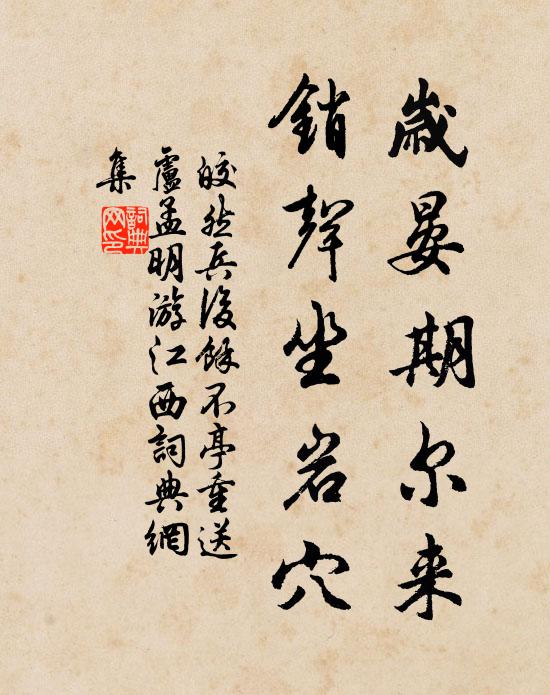 歲晏期尔来
銷聲坐岩穴
皎然兵後餘不亭重送
盧孟明游江西詞典網
集
詞典網印